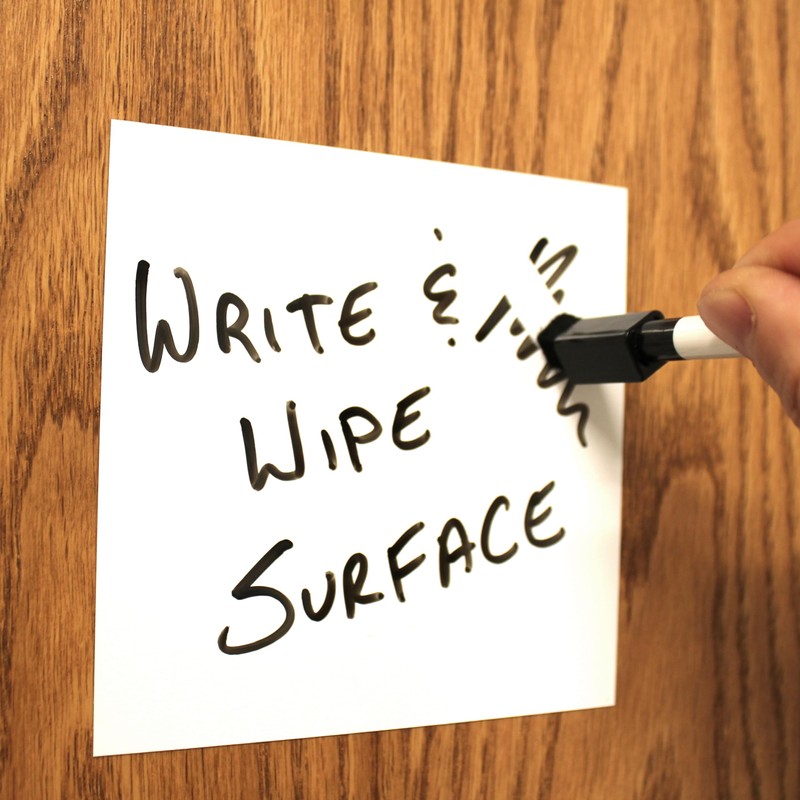 WRITE &
WIPE
SURFACE